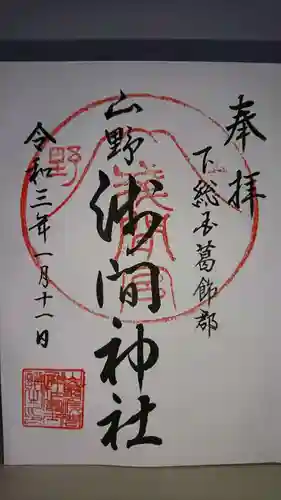 奉拝
下総国葛飾郡
山野
浅間神社
令和三年一月十一日
野